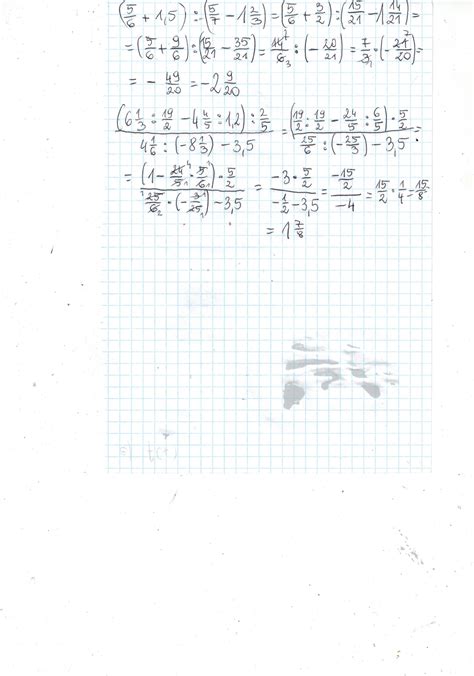 (5/6 + 1,5) : (5/7 - 1 2/3) = (5/6 + 9/2) : (15/21 - 1 14/21) =
= (5/6 + 9/6) : (15/21 - 35/21) = 14/6 : (- 20/21) = 7/3 · (- 21/20) =
= - 49/20 = -2 9/20
(6 1/3 : 19/2 - 4 4/5 : 1,2) : 2/5 / 4 1/6 : (-8 1/3) - 3,5 = (19/2 : 19/2 - 24/5 : 6/5) · 5/2 / 25/6 : (- 25/3) - 3,5 =
= (1 - 24/5 · 5/6) · 5/2 / 25/6 · (- 3/25) - 3,5 = -3 · 5/2 / - 1/2 - 3,5 = - 15/2 / -4 = 15/2 · 1/4 = 15/8
= 1 7/8